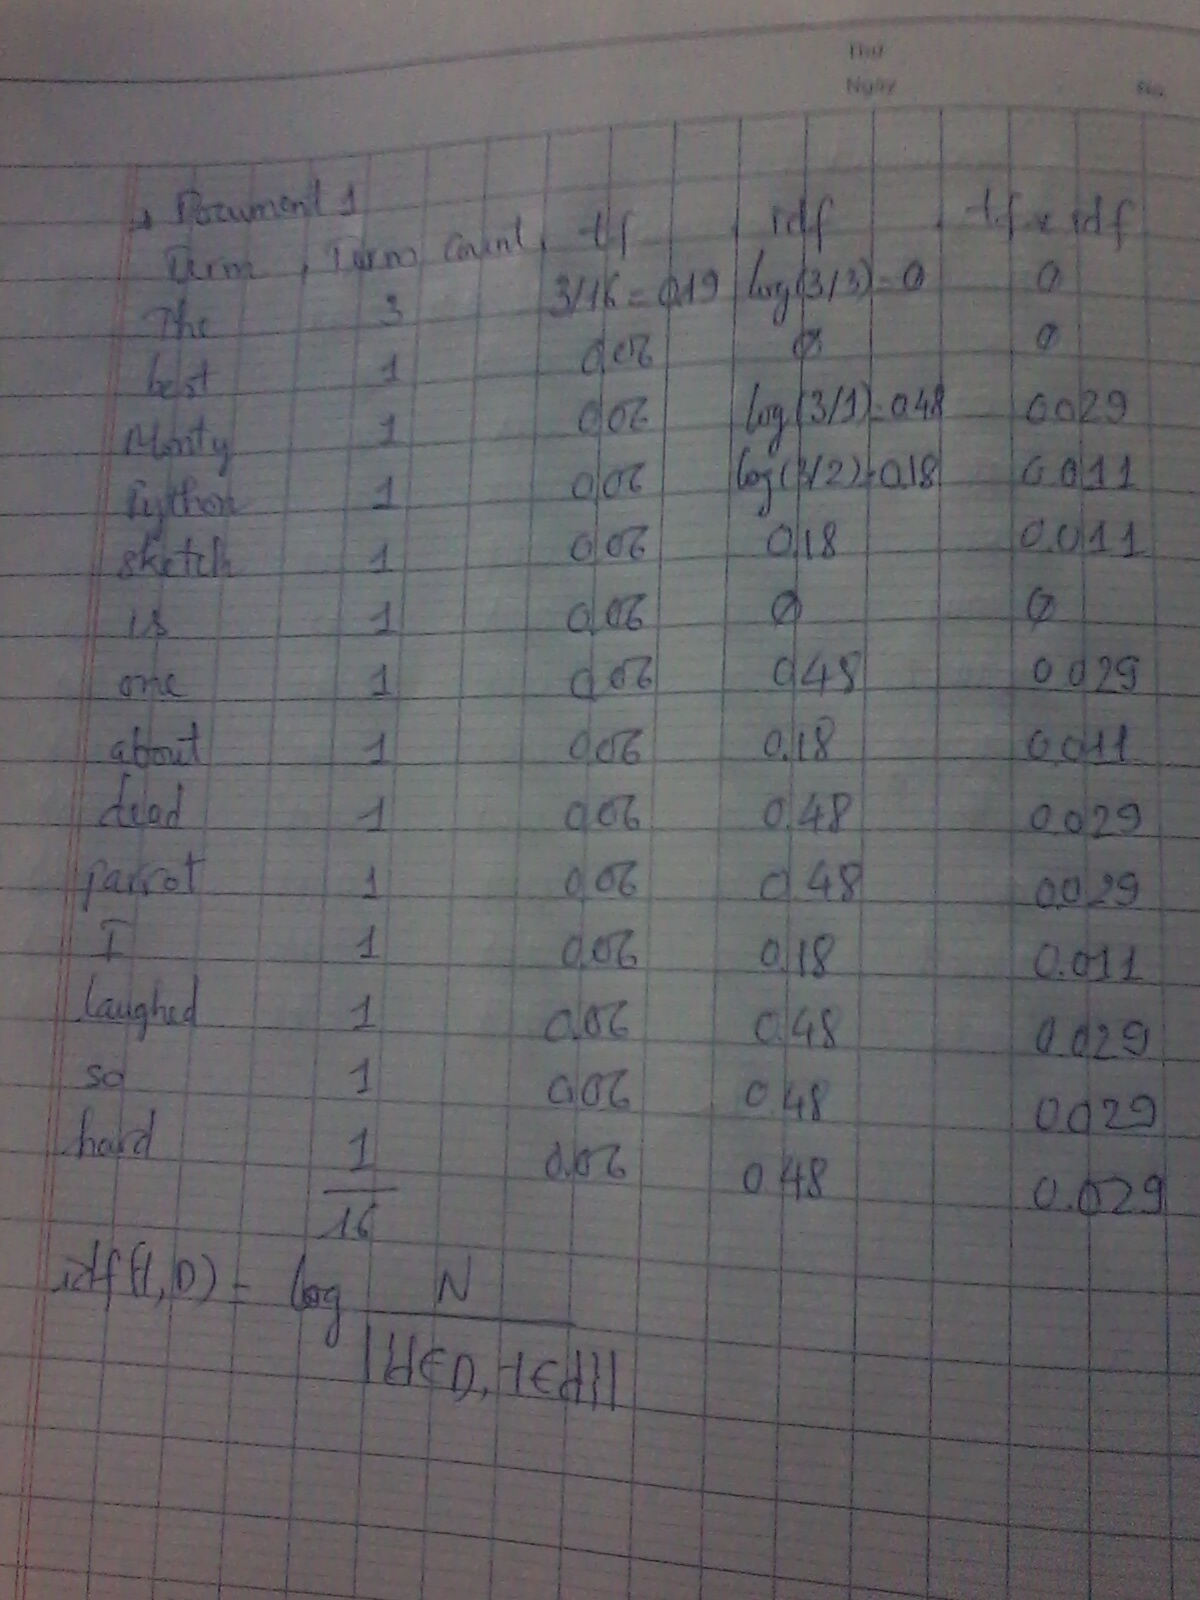 Thứ
Ngày No.
Document 1
Term, Term count, tf, idf, tf x idf
The 3 3/16 = 0.19 log(3/3) = 0 0
best 1 0.06 0 0
Monty 1 0.06 log(3/1) = 0.48 0.029
Python 1 0.06 log(3/2) = 0.18 0.011
sketch 1 0.06 0.18 0.011
is 1 0.06 0 0
one 1 0.06 0.48 0.029
about 1 0.06 0.18 0.011
dead 1 0.06 0.48 0.029
parrot 1 0.06 0.48 0.029
I 1 0.06 0.18 0.011
laughed 1 0.06 0.48 0.029
so 1 0.06 0.48 0.029
hard 1 0.06 0.48 0.029
16
idf(t,D) = log N
|{d∈D, t∈d}|